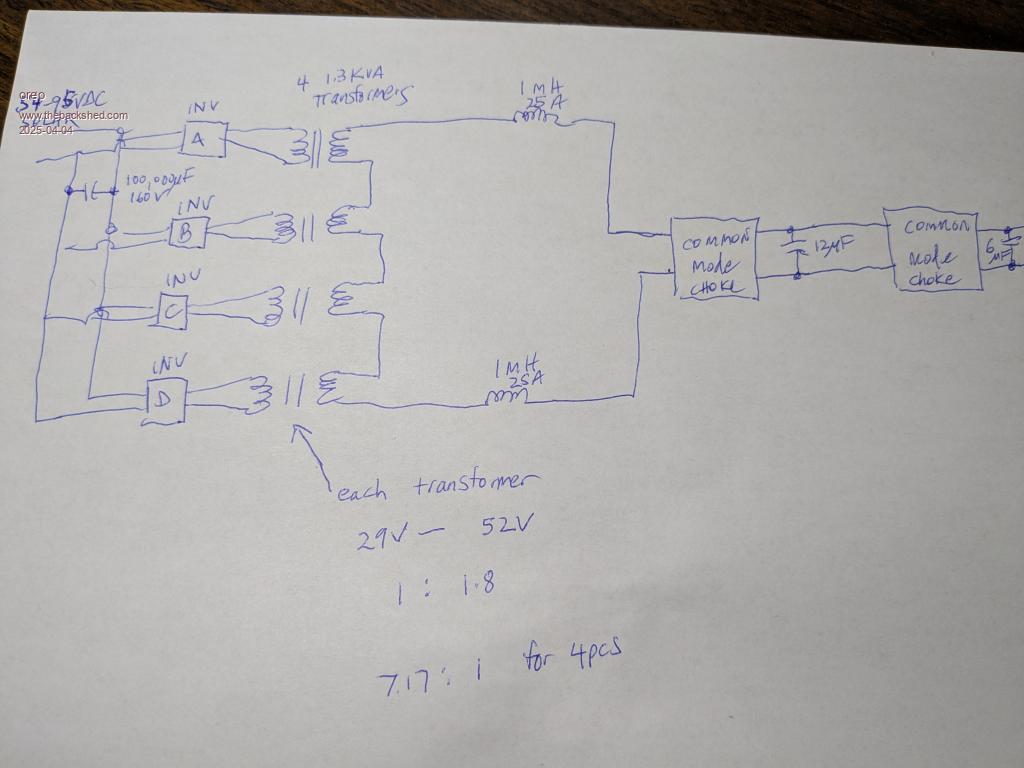 oreo
www.thepackshed.com
2025-04-04
INV
A
4 1.3KVA
Transformers
1MH
25A
100,000µF
160V
INV
B
INV
C
INV
D
1MH
25A
COMMON
MODE
CHOKE
12µF
COMMON
MODE
CHOKE
6
µF
each transformer
29V - 52V
1 : 1.8
7.17 : 1 for 4pcs